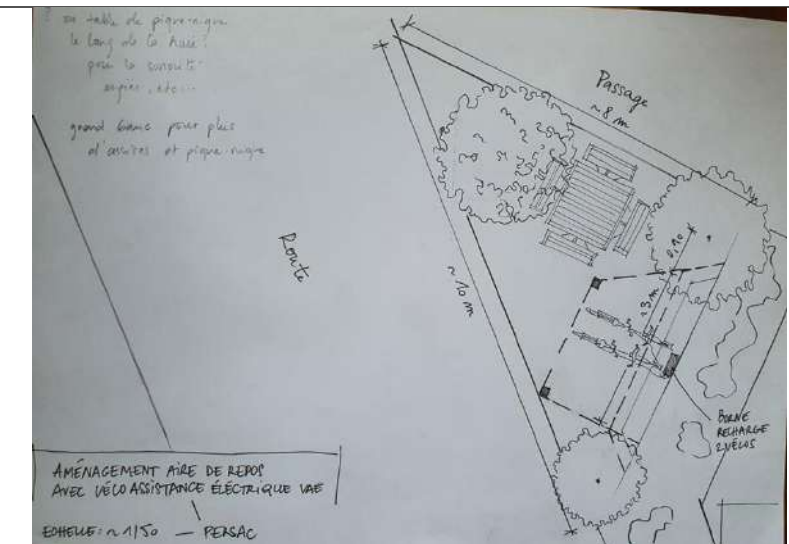 ? ou table de pique-nique
le long de la haie?
pour la
grand banc pour plus
d'assises et pique-nique
Passage
~ 8 m
Route
~ 10 m
~3 m
BORNE
RECHARGE
2 VÉLOS
AMÉNAGEMENT AIRE DE REPOS
AVEC VÉLO ASSISTANCE ÉLECTRIQUE VAE
ECHELLE: ~ 1/50 — PERSAC